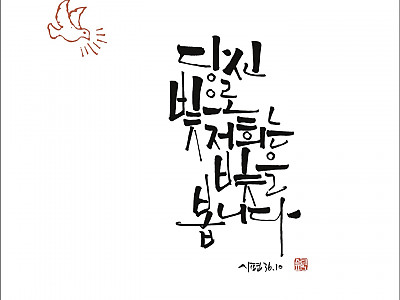 당신
빛으로
저희는
빛을
봅니다
시편36.10